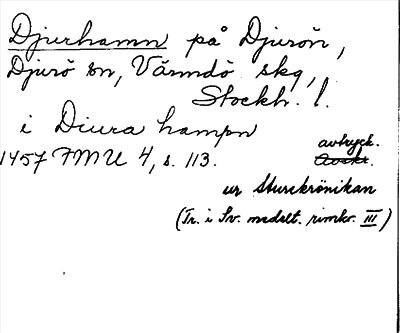 Djurhamn på Djurön,
Djurö sn, Värmdö skg,
Stockh. l.
i Diura hampn
1457 FMU 4, s. 113. avtryck.
Avskr.
ur Sturekrönikan
(Tr. i Sv. medelt. rimkr. III)